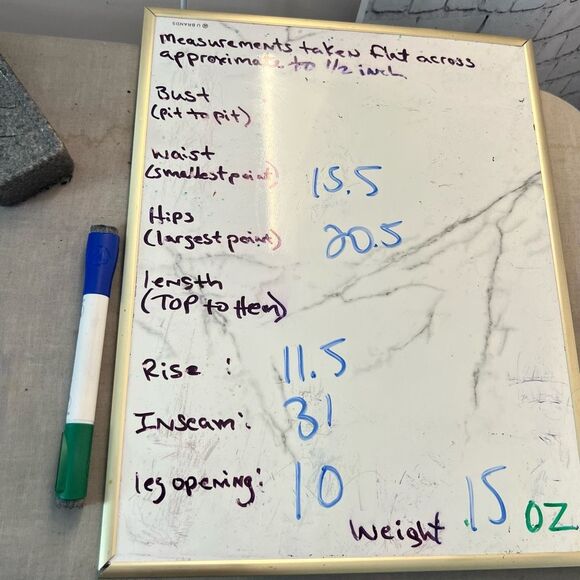 U BRANDS
Measurements taken flat across
approximate to 1/2 inch
Bust
(pit to pit)
waist
(smallest point) 15.5
Hips
(largest point) 20.5
length
(TOP to Hem)
Rise : 11.5
Inseam: 31
leg opening: 10
Weight 15 OZ